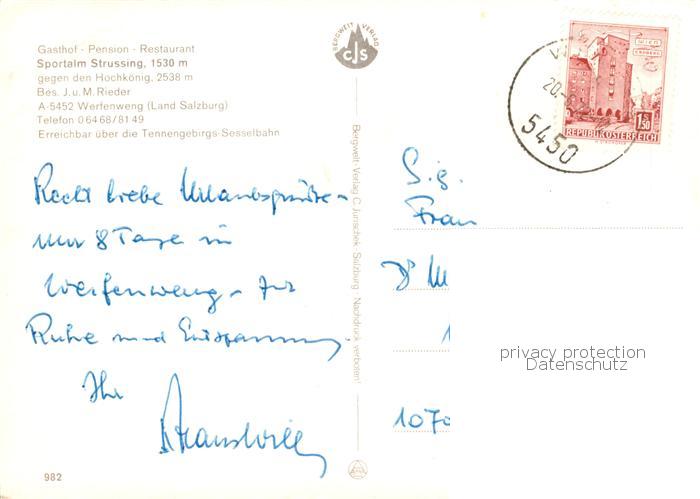 Gasthof - Pension - Restaurant
Sportalm Strussing, 1530 m
gegen den Hochkönig, 2538 m
Bes. J. u. M. Rieder
A-5452 Werfenweng (Land Salzburg)
Telefon 0 64 68 / 81 49
Erreichbar über die Tennengebirgs-Sesselbahn
BERGWELT VERLAG
CJS
Bergwelt-Verlag C. Jurischek - Salzburg · Nachdruck verboten!
Recht liebe Urlaubsgrüße -
nur 8 Tage in
Werfenweng - zur
Ruhe und Entspannung.
Ihr
982
5450
WIEN
ERDBERG
1,50
REPUBLIK ÖSTERREICH
Sig.
Frau
Dr M
1
1070
privacy protection
Datenschutz